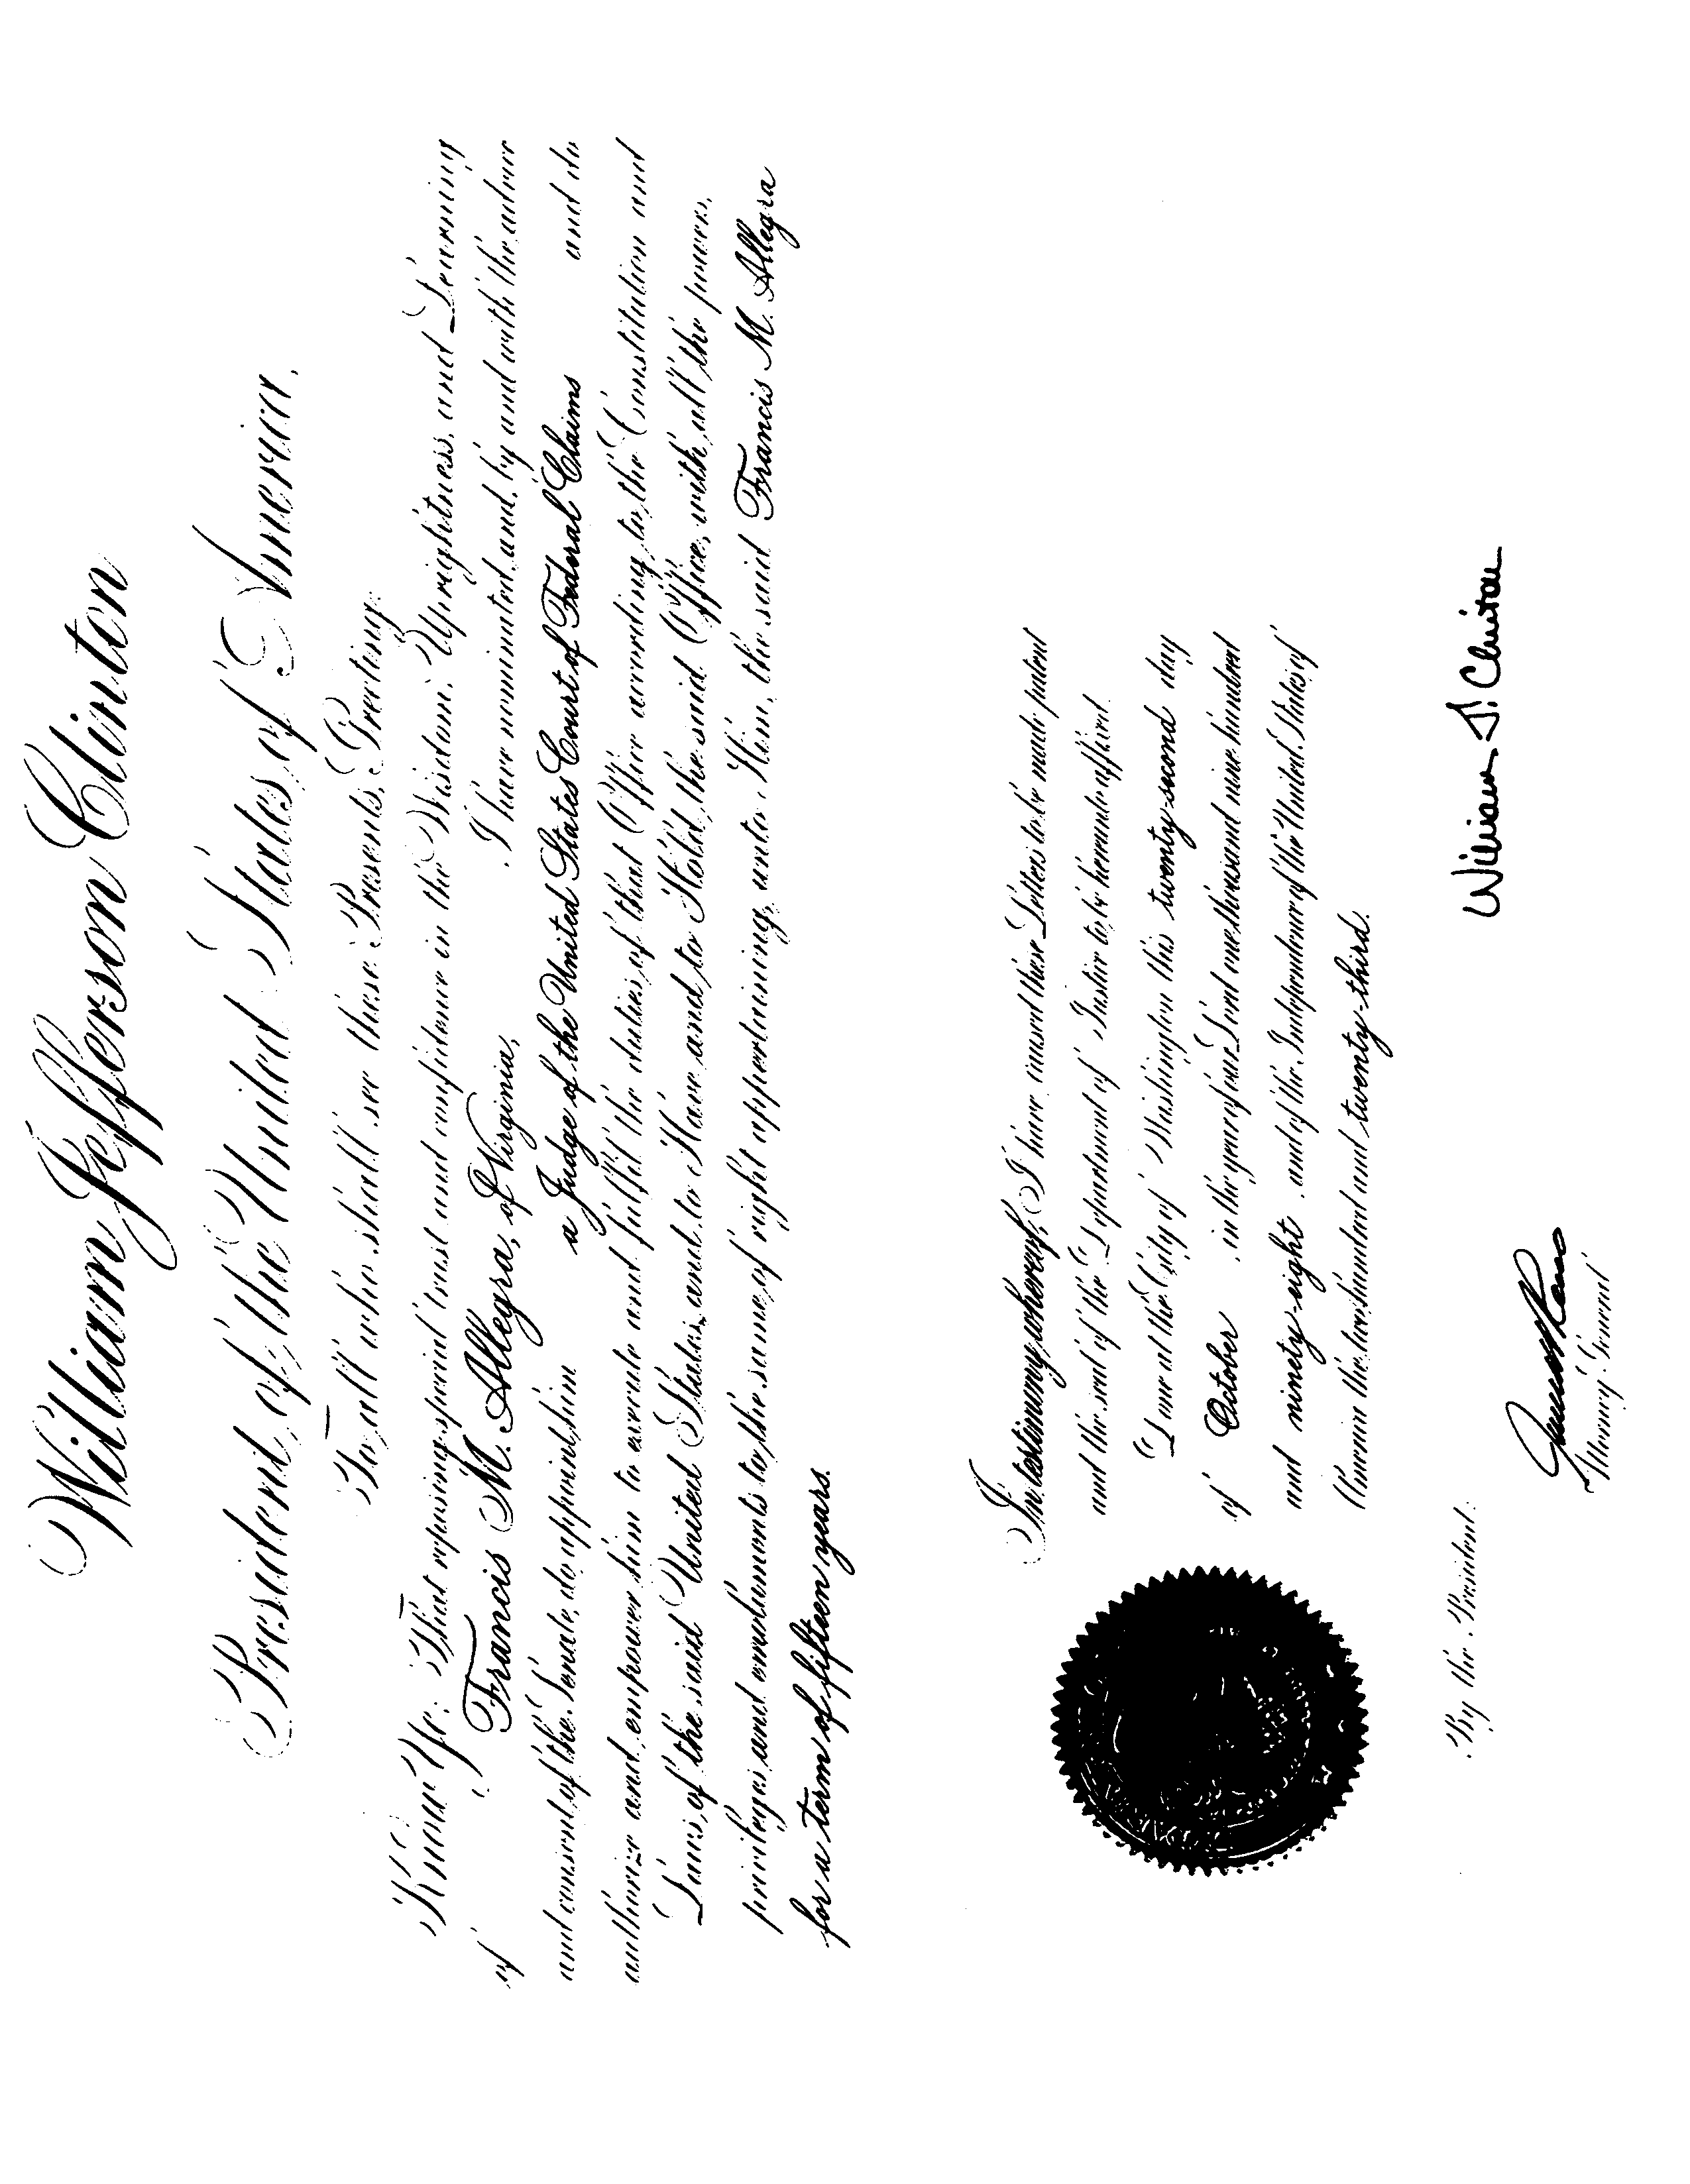 William Jefferson Clinton
President of the United States of America,
To all who shall see these Presents, Greeting:
Know Ye: That reposing special trust and confidence in the Wisdom, Uprightness, and Learning
of Francis M. Allegra, of Virginia, I have nominated, and, by and with the advice
and consent of the Senate, do appoint him a Judge of the United States Court of Federal Claims and do
authorize and empower him to execute and fulfil the duties of that Office according to the Constitution and
Laws of the said United States, and to Have and to Hold the said Office, with all the powers,
privileges and emoluments to the same of right appertaining, unto Him, the said Francis M. Allegra
for a term of fifteen years.
In testimony whereof, I have caused these Letters to be made patent
and the seal of the Department of Justice to be hereunto affixed.
Done at the City of Washington this twenty-second day
of October in the year of our Lord one thousand nine hundred
and ninety-eight and of the Independence of the United States of
America the two hundred and twenty-third.
William J. Clinton
By the President:
Attorney General